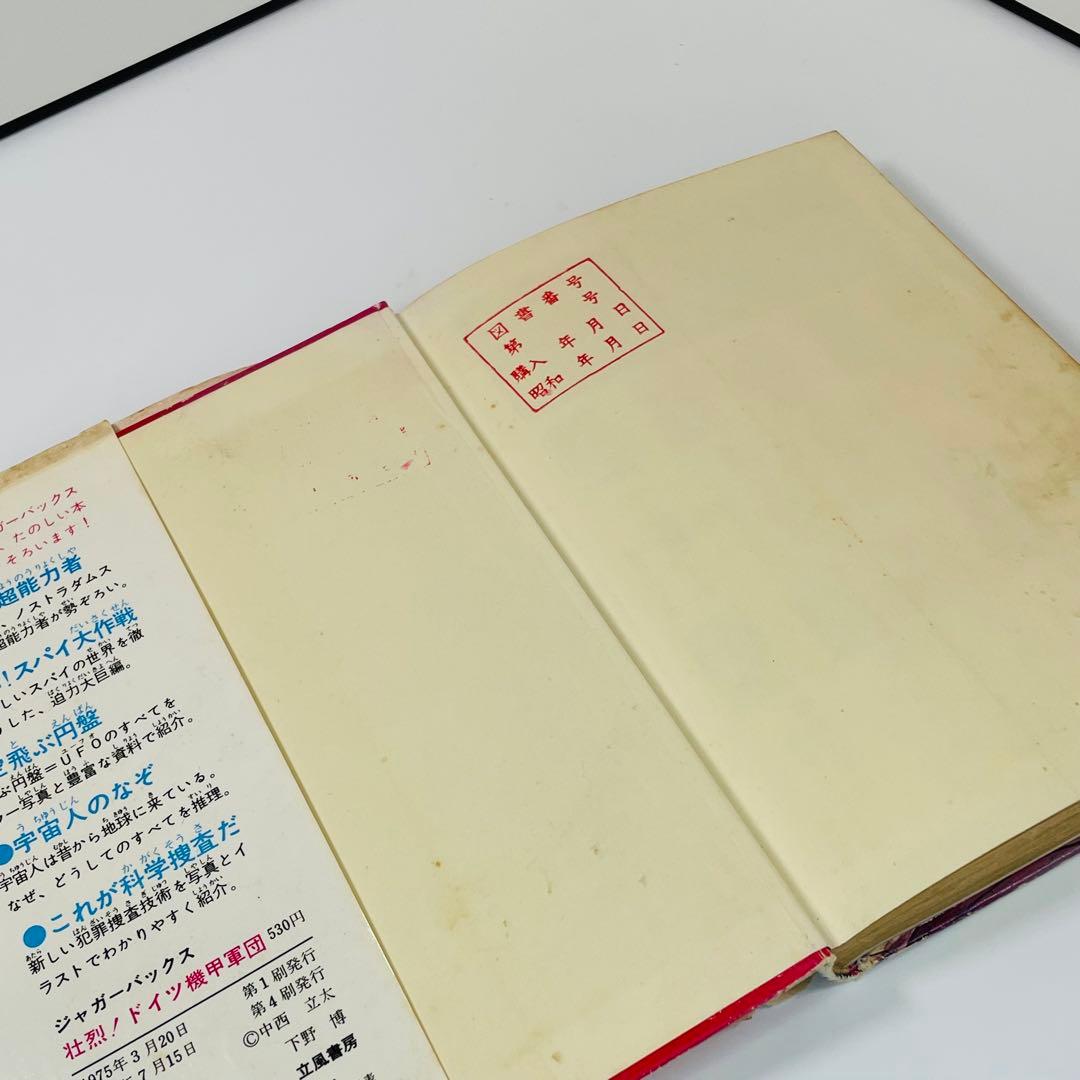 ガーバックス
、たのしい本
そろいます！
超能力者
、ノストラダムス
超能力者が勢ぞろい。
！スパイ大作戦
しいスパイの世界を徹
した、迫力大巨編。
飛ぶ円盤
ぶ円盤＝UFOのすべてを
ー写真と豊富な資料で紹介。
●宇宙人のなぞ
宇宙人は昔から地球に来ている。
なぜ、どうしてのすべてを推理。
●これが科学捜査だ
新しい犯罪捜査技術を写真とイ
ラストでわかりやすく紹介。
ジャガーバックス
壮烈！ドイツ機甲軍団 530円
1975年3月20日 第1刷発行
年7月15日 第4刷発行
©中西 立太
下野 博
立風書房
図書番号
第 号
購入 年 月 日
昭和 年 月 日